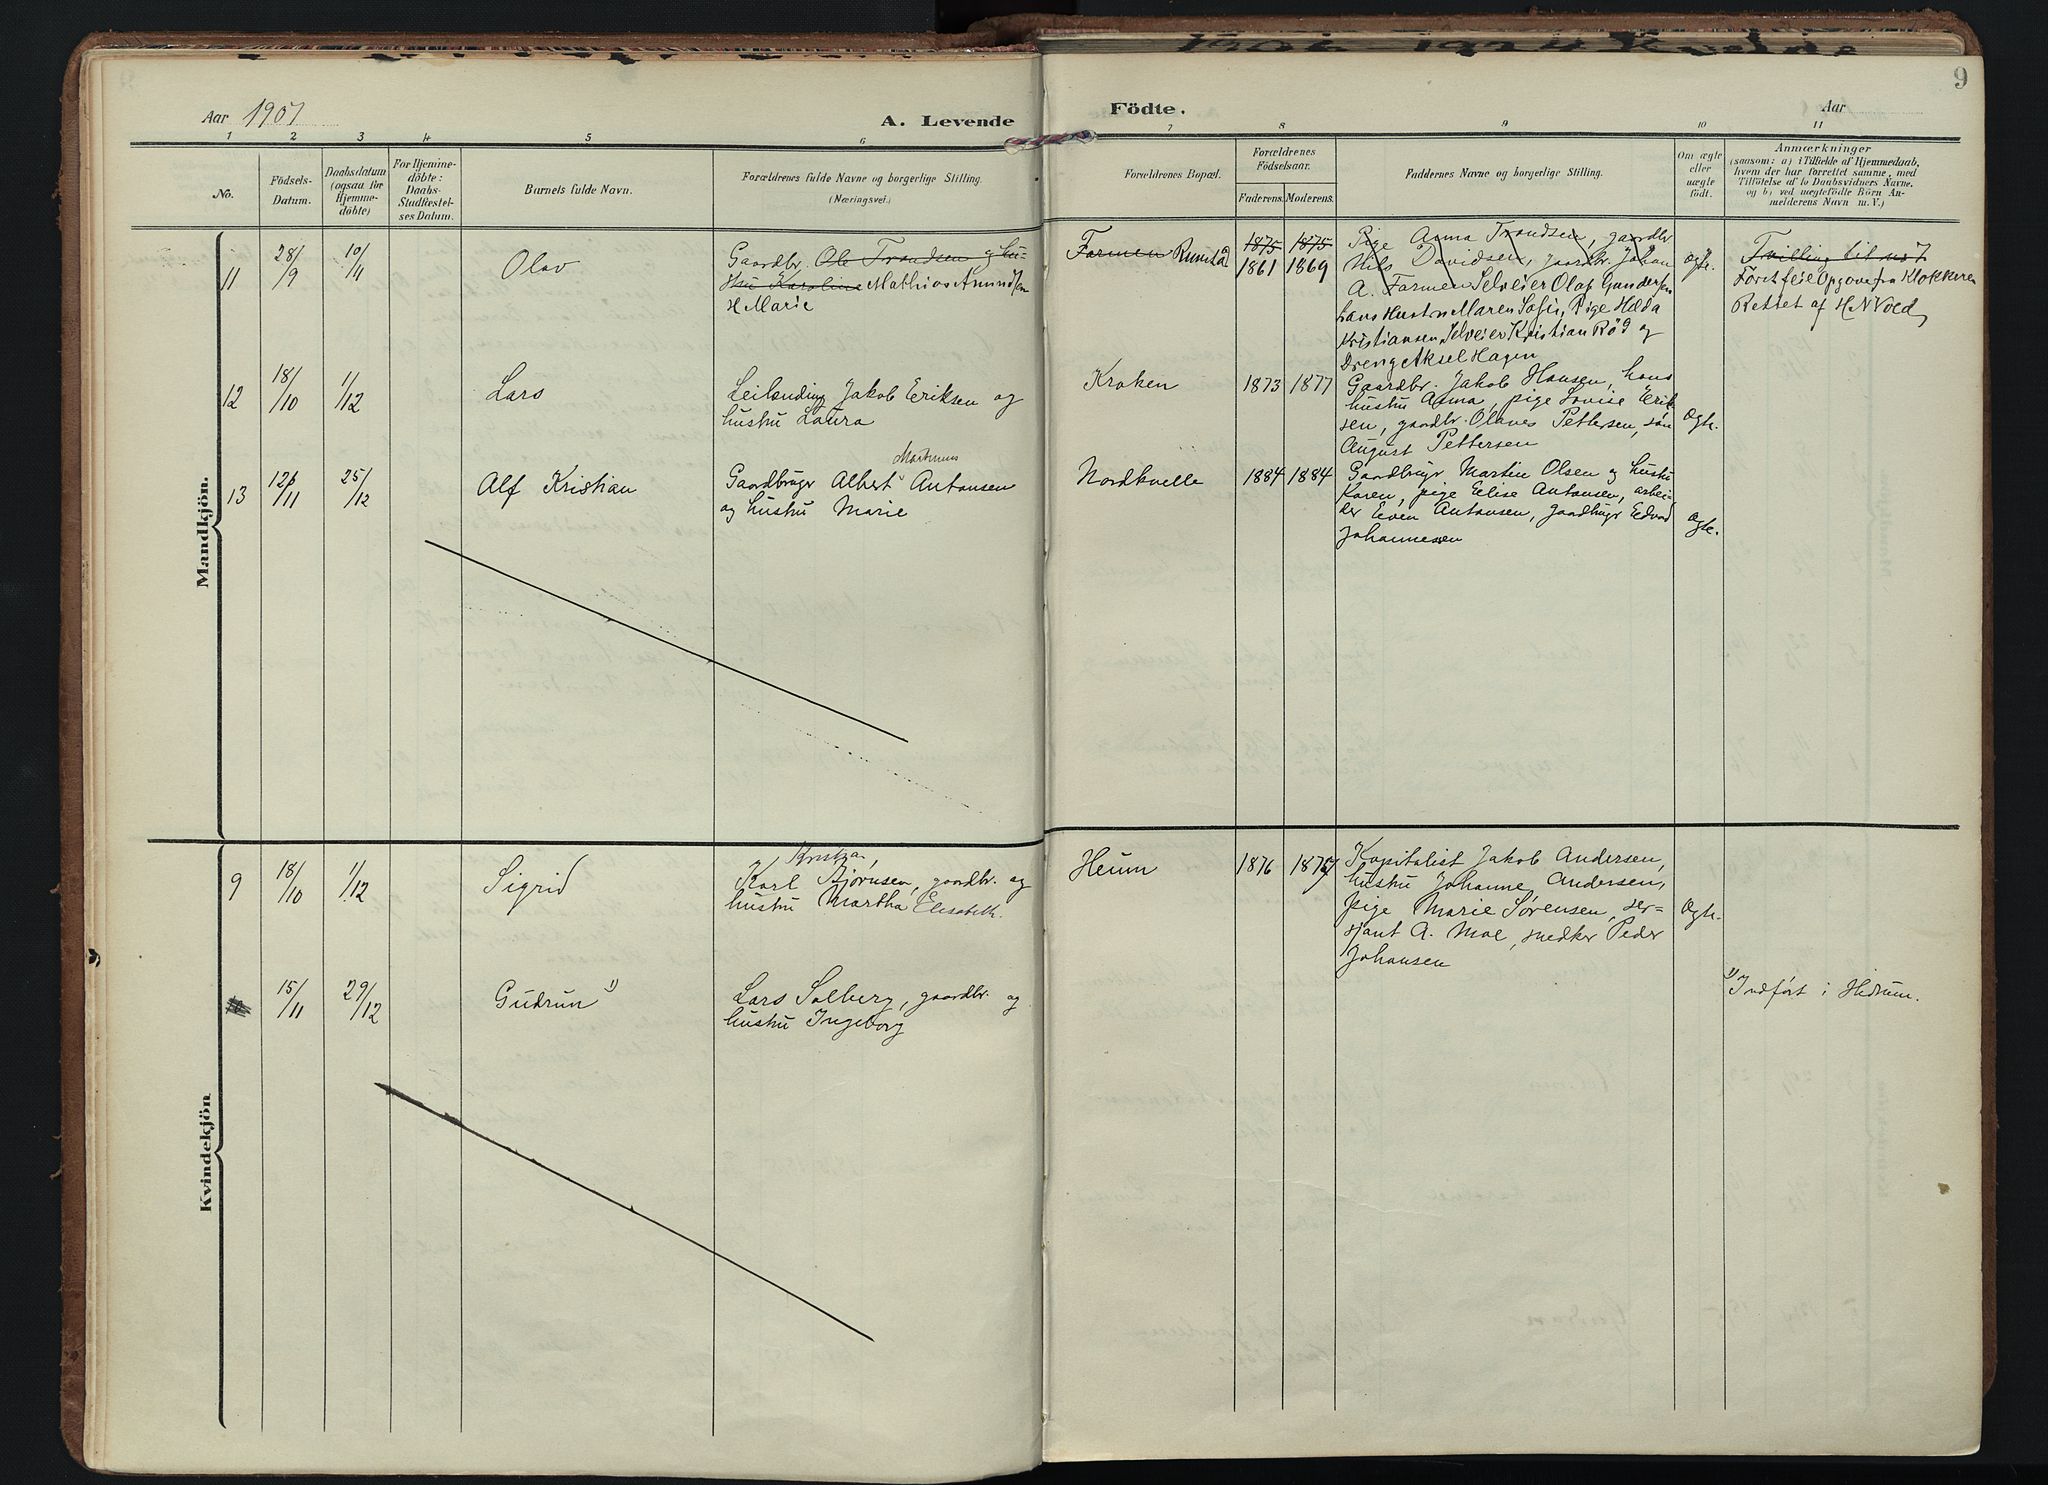 9
Aar 1907
A. Levende
Födte.
Aar
1 2 3 4 5 6 7 8 9 10 11
No.
Födsels-
Datum.
Daabsdatum
(ogsaa for
Hjemme-
döbte)
For Hjemme-
döbte:
Daabs-
Stadfæstel-
ses Datum.
Barnets fulde Navn.
Forældrenes fulde Navne og borgerlige Stilling.
(Næringsvei.)
Forældrenes Bopæl.
Forældrenes
Födselsaar.
Faderens. Moderens.
Faddernes Navne og borgerlige Stilling.
Om ægte
eller
uægte
födt.
Anmærkninger
(saasom: a) i Tilfælde af Hjemmedaab,
hvem der har forrettet samme, med
Tilföielse af to Daabsvidners Navne,
og b) ved uægtefödte Börn An-
melderens Navn m. V.)
Mandkjön.
11
28/9
10/4
Olav
Gaardbr. Ole Trandsen og hu-
stru Karoline Mathias Amundsen
H Marie
Farmen Rimstad
1875 1875
1861 1869
Pige Anna Trandsen, gaardbr
Nils Davidsen, gaardbr. Johan
A. Farmen Selveier Olaf Gundersen
hans Hustru Maren Sofie, Pige Hilda
Kristiansen, Selveier Kristian Rød og
Dreng Aksel Hagen
Ægte.
Tvilling til no 7
Først feil Opgave fra Klokkeren
Rettet af H N Vold
12
18/10
1/12
Lars
Leilending Jakob Eriksen og
hustru Laura
Kroken
1873 1877
Gaardbr. Jakob Hansen, hans
hustru Anna, pige Lovise Erik-
sen, gaardbr. Olaves Pettersen, søn
August Pettersen
Ægte.
13
/11
25/12
Alf Kristian
Martinius
Gaardbruger Albert Antonsen
og hustru Marie
Nordkvelle
1884 1884
Gaardbrugr Martin Olsen og hustru
Karen, pige Elise Antonsen, arbei-
der Even Antonsen, gaardbrugr Edvard
Johannesen
Ægte.
Kvindekjön
9
18/10
1/12
Sigrid
Kristian,
Karl Bjørnsen, gaardbr. og
hustru Martha Elisabeth.
Heum
1876 1877
Kapitalist Jakob Andersen,
hustru Johanne Andersen,
pige Marie Sørensen, ser-
sjant A. Moe, snedker Peder
Johansen
Ægte.
15/11
29/12
Gudrun 1)
Lars Solberg, gaardbr. og
hustru Ingeborg
1) Indført i Hedrum.